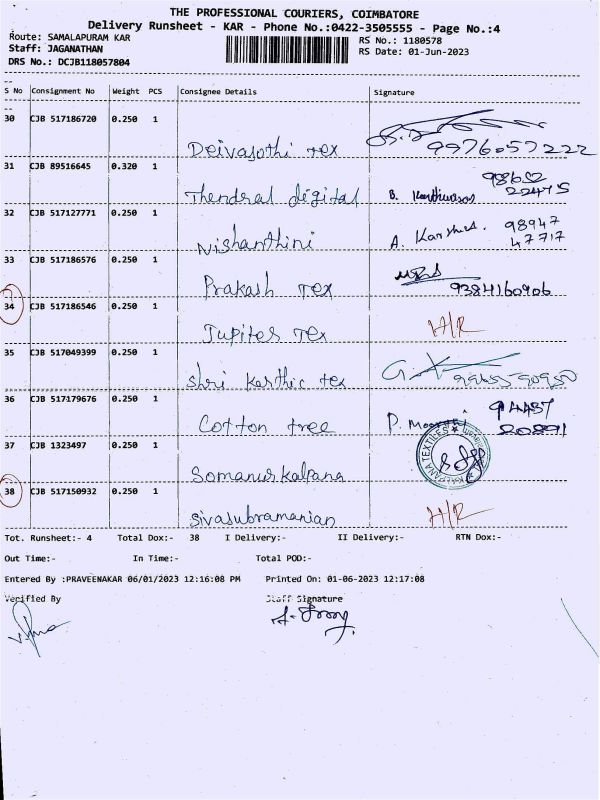 THE PROFESSIONAL COURIERS, COIMBATORE
Delivery Runsheet - KAR - Phone No.:0422-3505555 - Page No.:4
Route: SAMALAPURAM KAR
RS No.: 1180578
Staff: JAGANATHAN
RS Date: 01-Jun-2023
DRS No.: DCJB118057804
S No Consignment No Weight PCS Consignee Details Signature
30 CJB 517186720 0.250 1
Deivajothi Tex 9976057222
31 CJB 89516645 0.320 1
Thendral digital B. 98652 22475
32 CJB 517127771 0.250 1
Nishanthini A. 98947 47717
33 CJB 517186576 0.250 1
Prakash Tex 9384160906
34 CJB 517186546 0.250 1
Jupiter Tex H/R
35 CJB 517049399 0.250 1
Shri Karthic tex
36 CJB 517179676 0.250 1
Cotton tree P. Moorthi 94437 20891
37 CJB 1323497 0.250 1
KALPANA TEXTILES
Somanur kalpana
38 CJB 517150932 0.250 1
Sivasubramanian H/R
Tot. Runsheet:- 4 Total Dox:- 38 I Delivery:- II Delivery:- RTN Dox:-
Out Time:- In Time:- Total POD:-
Entered By :PRAVEENAKAR 06/01/2023 12:16:08 PM Printed On: 01-06-2023 12:17:08
Verified By Staff Signature